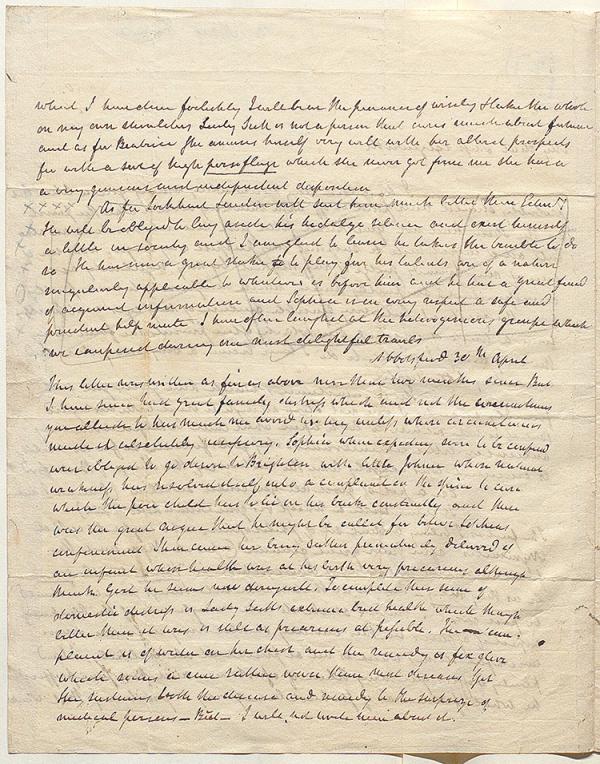 what I have done foolishly I will bear the penance of wisely & take the whole
on my own shoulders Lady Scott is not a person that cares much about future
and as for Beatrice she amuses herself very well with her altered prospects
for with a sort of high persiflage which she never got from me she has a
a very generous and independent disposition
As for Lockhart London will suit him much better than Edinr.
He will be obliged to lay aside his hidalgo reserve and exert himself
a little in society and I am glad to learn he takes the trouble to do
so He has now a great stake to play for his talents are of a nature
singularly applicable to whatever is before him and he has a great fund
of acquired information and Sophia is in every respect a safe and
prudent help mate I have often laughed at the heterogeneous groupe which
we composed during our most delightful travels
Abbotsford 30th April
This letter was written as far as above more than two months since But
I have since had great family distress which and not the circumstances
you allude to has made me avoid writing unless where circumstances
made it absolutely necessary. Sophia when expecting soon to be confined
was obliged to go down to Brighton with little Johnie whose natural
weakness has resolved itself into a complaint in the spine to cure
which the poor child has to lie on his back constantly and there
was the great anxiety that he might be called for before Sophias
confinement Then came her being rather prematurely delivered of
an infant whose health was at his birth very precarious although
thank God he seems now doing well. To complete this scene of
domestic distress is Lady Scotts extreme bad health which though
better than it was is still as precarious as possible. The com-
plaint is of water on her chest and the remedy is fox glove
which seems a cure rather worse than most diseases Yet
she sustains both the disease and remedy to the surprize of
medical persons — But — I will not write more about it.